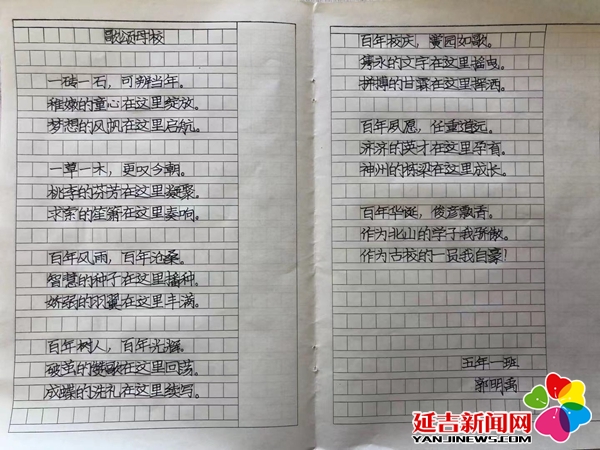 歌颂母校
一砖一石，可溯当年。
稚嫩的童心在这里绽放。
梦想的风帆在这里启航。
一草一木，更叹今朝。
桃李的芬芳在这里凝聚。
求索的笙箫在这里奏响。
百年风雨，百年沧桑。
智慧的种子在这里播种。
娇弱的羽翼在这里丰满。
百年树人，百年光辉。
破茧的赞歌在这里回荡。
成蝶的洗礼在这里续写。
百年校庆，黉园如歌。
隽永的文字在这里摇曳。
拼搏的甘露在这里挥洒。
百年夙愿，任重道远。
济济的英才在这里孕育。
神州的栋梁在这里成长。
百年华诞，俊彦飘香。
作为北山的学子我骄傲。
作为古校的一员我自豪！
五年一班
郭明禹
延吉新闻网
YANJINEWS.COM